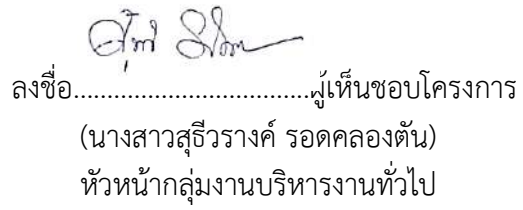 ลงชื่อ..................................ผู้เห็นชอบโครงการ
(นางสาวสุธีวรางค์ รอดคลองตัน)
หัวหน้ากลุ่มงานบริหารงานทั่วไป